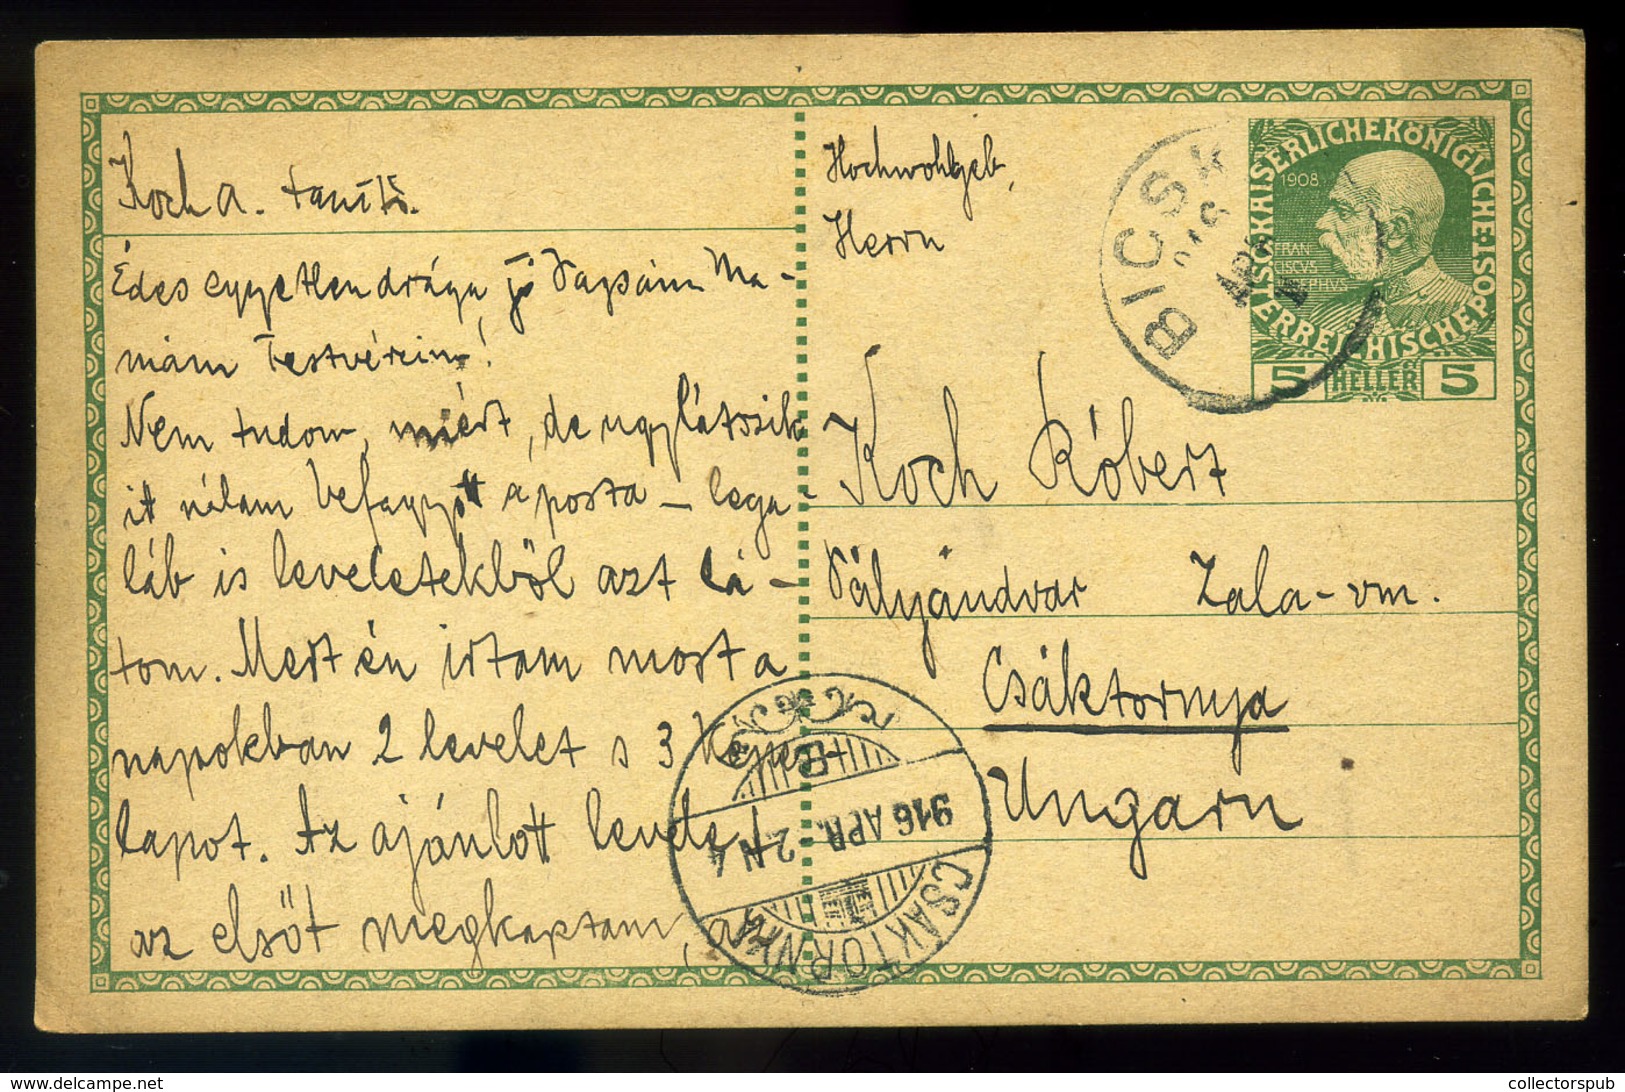 Koch A. tanító.
Édes egyetlen drága jó Papám Ma-
mám Testvéreim!
Nem tudom, miért, de ugylátszik
itt nálam befagyott a posta – lega-
láb is leveletekből azt lá-
tom. Mert én irtam most a
napokban 2 levelet s 3
lapot. Az ajánlott levele
az elsőt megkaptam, a
Hochwohlgeb.
Herrn
Koch Róbert
Zala-vm.
Csáktornya
Ungarn
KAISERLICHE KÖNIGLICHE
ÖSTERREICHISCHE POST
1908
FRAN
CISCVS
IOSEPHVS
5 HELLER 5
BICSK
916 APR. 2 N 4
CSÁKTORNYA
collectorspub